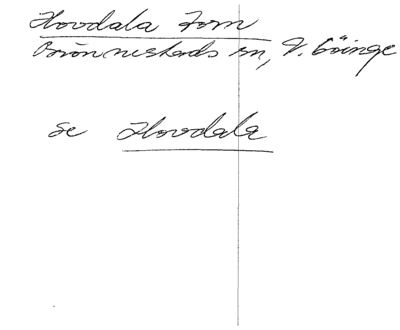 Hovdala Torn
Brönnestads sn, V. Göinge
se Hovdala